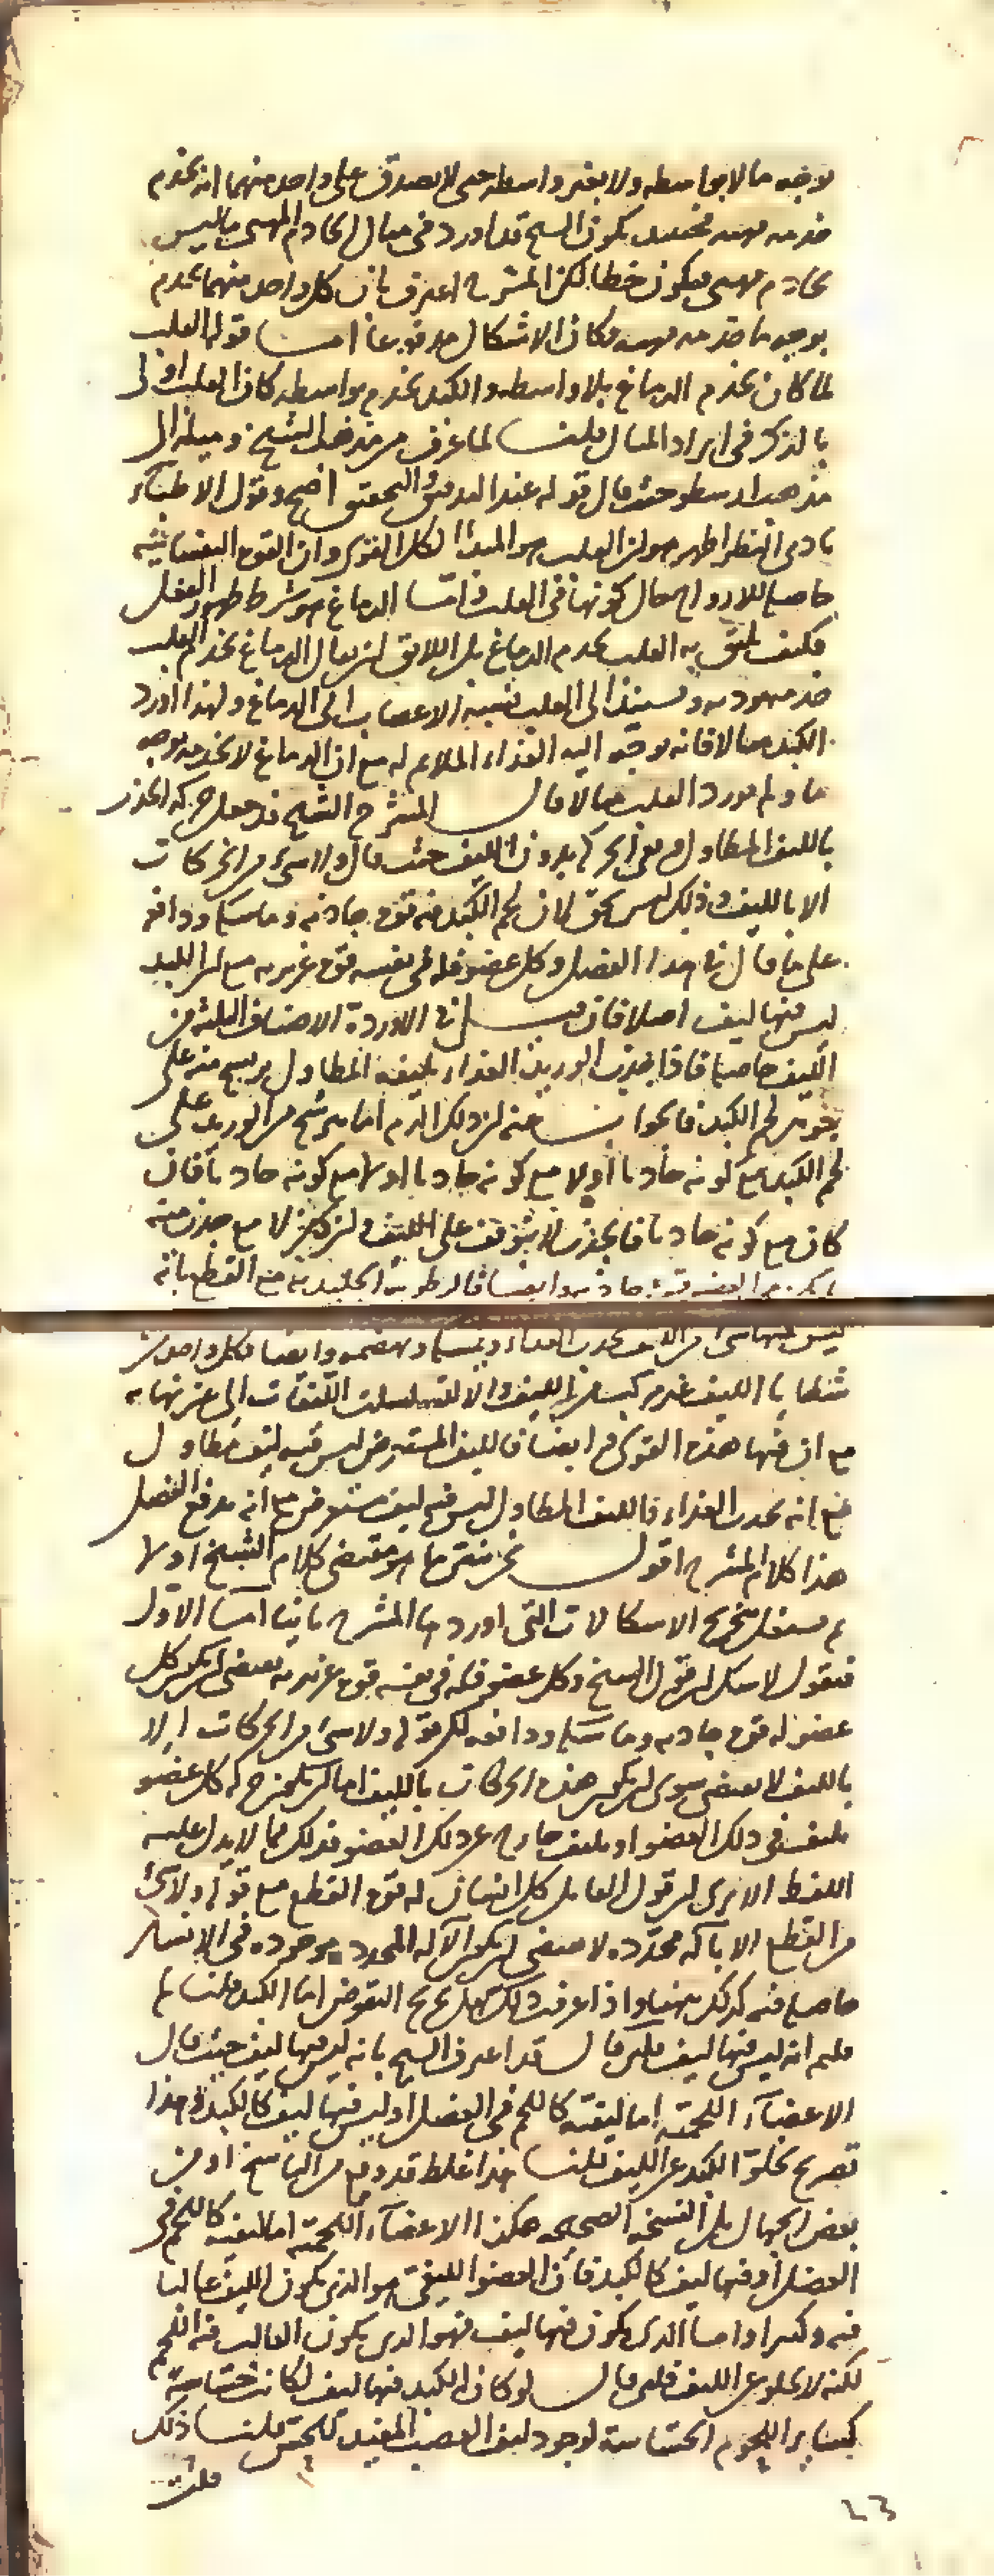 لا يوجه ما لا بواسطه ولا بغير واسطه حتى لا يصدق على واحد منهما انه يخدم
خدمه مهيئه فحينئذ يكون الشيخ قد اورد في مثال الخادم المهيى ما ليس
بخادم مهيى فيكون خطا لكن المشرح اعترف بان كل واحد منهما يخدم
بوجه ما خدمه مهيئه فكان الاشكال مدفوعا اما قوله القلب
لما كان يخدم الدماغ بلا واسطه والكبد يخدم بواسطه كان القلب اولى
بالذكر في ايراد المثال قلنا لما عرف من مذهب الشيخ وميله الى
مذهب ارسطو حيث قال قوله عند التدقيق والتحقيق اصح وقول الاطباء
بادى النظر اظهر هو ان القلب هو المبدا لكل القوى وان القوه النفسانيه
حاصله للارواح حال كونها في القلب واما الدماغ هو شرط ظهور الفعل
فكيف يليق به القلب يخدم الدماغ بل اللائق ان يقال الدماغ يخدم القلب
خدمه موديه ويستند الى القلب نسبه الاعصاب الى الدماغ ولهذا اورد
الكبد مثالا فانه يوجه اليه الغذاء الملائم له مع ان الدماغ لا يخدمه بوجه
ما ولم يورد القلب مثالا قال المشرح الشيخ قد جعل حركه الجذب
بالليف المتطاول ومنع الحركه بدون الليف حيث قال ولا شئ من الحركات
الا بالليف وذلك ليس بحق لان لحم الكبد فيه قوه جاذبه وماسكه ودافعه
على ما قال في هذا الفصل وكل عضو فله في نفسه قوه غريزيه مع ان الكبد
ليس فيها ليف اصلا فان قيل ان في الاورده الاصناف الثلثه من
الليف حاصله فاذا جذب الوريد الغذاء بليفه المتطاول يرشح منه على
جوهر لحم الكبد فالجواب عنه ان ذلك الدم اما يرشح من الوريد على
لحم الكبد مع كونه جاذبا او لا مع كونه جاذبا فان
كان مع كونه جاذبا فالجذب لا يتوقف على الليف وان كان لا مع جذب منه
لم يكن في العضو قوه جاذبه وايضا فالرطوبه الجليديه مع القطع بانه
ليس فيها شئ من الليف تجذب الغذاء وتمسكه وتهضمه وايضا فكل واحد من
شظايا الليف غير مركب من الليف والا لتسلسلت الليفات الى غير نهايه
مع ان فيها هذه القوى وايضا فالليف المستعرض ليس فيه ليف متطاول
مع انه يجذب الغذاء والليف المتطاول ليس فيه ليف مستعرض مع انه يدفع الفضل
هذا كلام المشرح اقول نحن نبين ما هو مقتضى كلام الشيخ اولا
ثم نشتغل بتخريج الاشكالات التي اوردها المشرح ثانيا اما الاول
فنقول لا شك ان قول الشيخ وكل عضو فله في نفسه قوه غريزيه يقتضى ان يكون كل
عضو له قوه جاذبه وماسكه ودافعه لكن قوله ولا شئ من الحركات الا
بالليف لا يقتضى سوى ان يكون هذه الحركات بالليف اما ان يكون حركه كل عضو
بليف في ذلك العضو او بليف خارج عن ذلك العضو فذلك مما لا يدل عليه
اللفظ الا ترى ان قول القائل كل انسان له قوه القطع مع قوله ولا شئ
من القطع الا بآله محدده لا يقتضى ان يكون الآله المحدده موجوده في الانسان
حاصله فيه كذلك ههنا واذا عرفت ذلك سهل تخريج النقوض اما الكبد قلنا لم
قلتم انه ليس فيها ليف فلئن قال قد اعترف الشيخ بانه ليس فيها ليف حيث قال
الاعضاء اللحميه اما ليفيه كاللحم في العضل او ليس فيها ليف كالكبد وهذا
تصريح بخلو الكبد عن الليف قلنا هذا غلط قد وقع من الناسخ او من
بعض الجهال بل النسخه الصحيحه هكذا الاعضاء اللحميه اما ليفيه كاللحم في
العضل او فيها ليف كالكبد فان العضو الليفى هو الذي يكون الليف غالبا
فيه وكثيرا واما الذي يكون فيها ليف فهو الذي يكون الغالب فيه اللحم
لكنه لا يخلو عن الليف فلئن قال لو كان الكبد فيها ليف لكانت حساسه
كسائر اللحوم الحساسه لوجود ليف العصب المفيد للحس قلنا ذلك
23